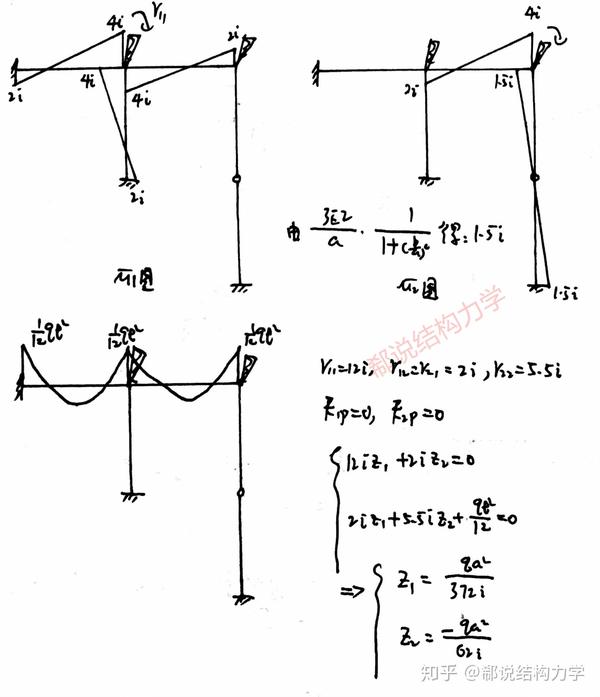 4i r₁₁
2i
4i
2i
4i
2i
M̄₁图
4i
2i
1.5i
1.5i
由 3EI/a · 1/(1+(1)³) 得: 1.5i
M̄₂图
郗说结构力学
1/12 ql² 1/12 ql² 1/12 ql²
r₁₁=12i, r₁₂=r₂₁=2i, r₂₂=5.5i
R₁p=0, R₂p=0
12iz₁+2iz₂=0
2iz₁+5.5iz₂+ql²/12=0
=> z₁=qa²/372i
z₂=-qa²/62i
知乎 @郗说结构力学